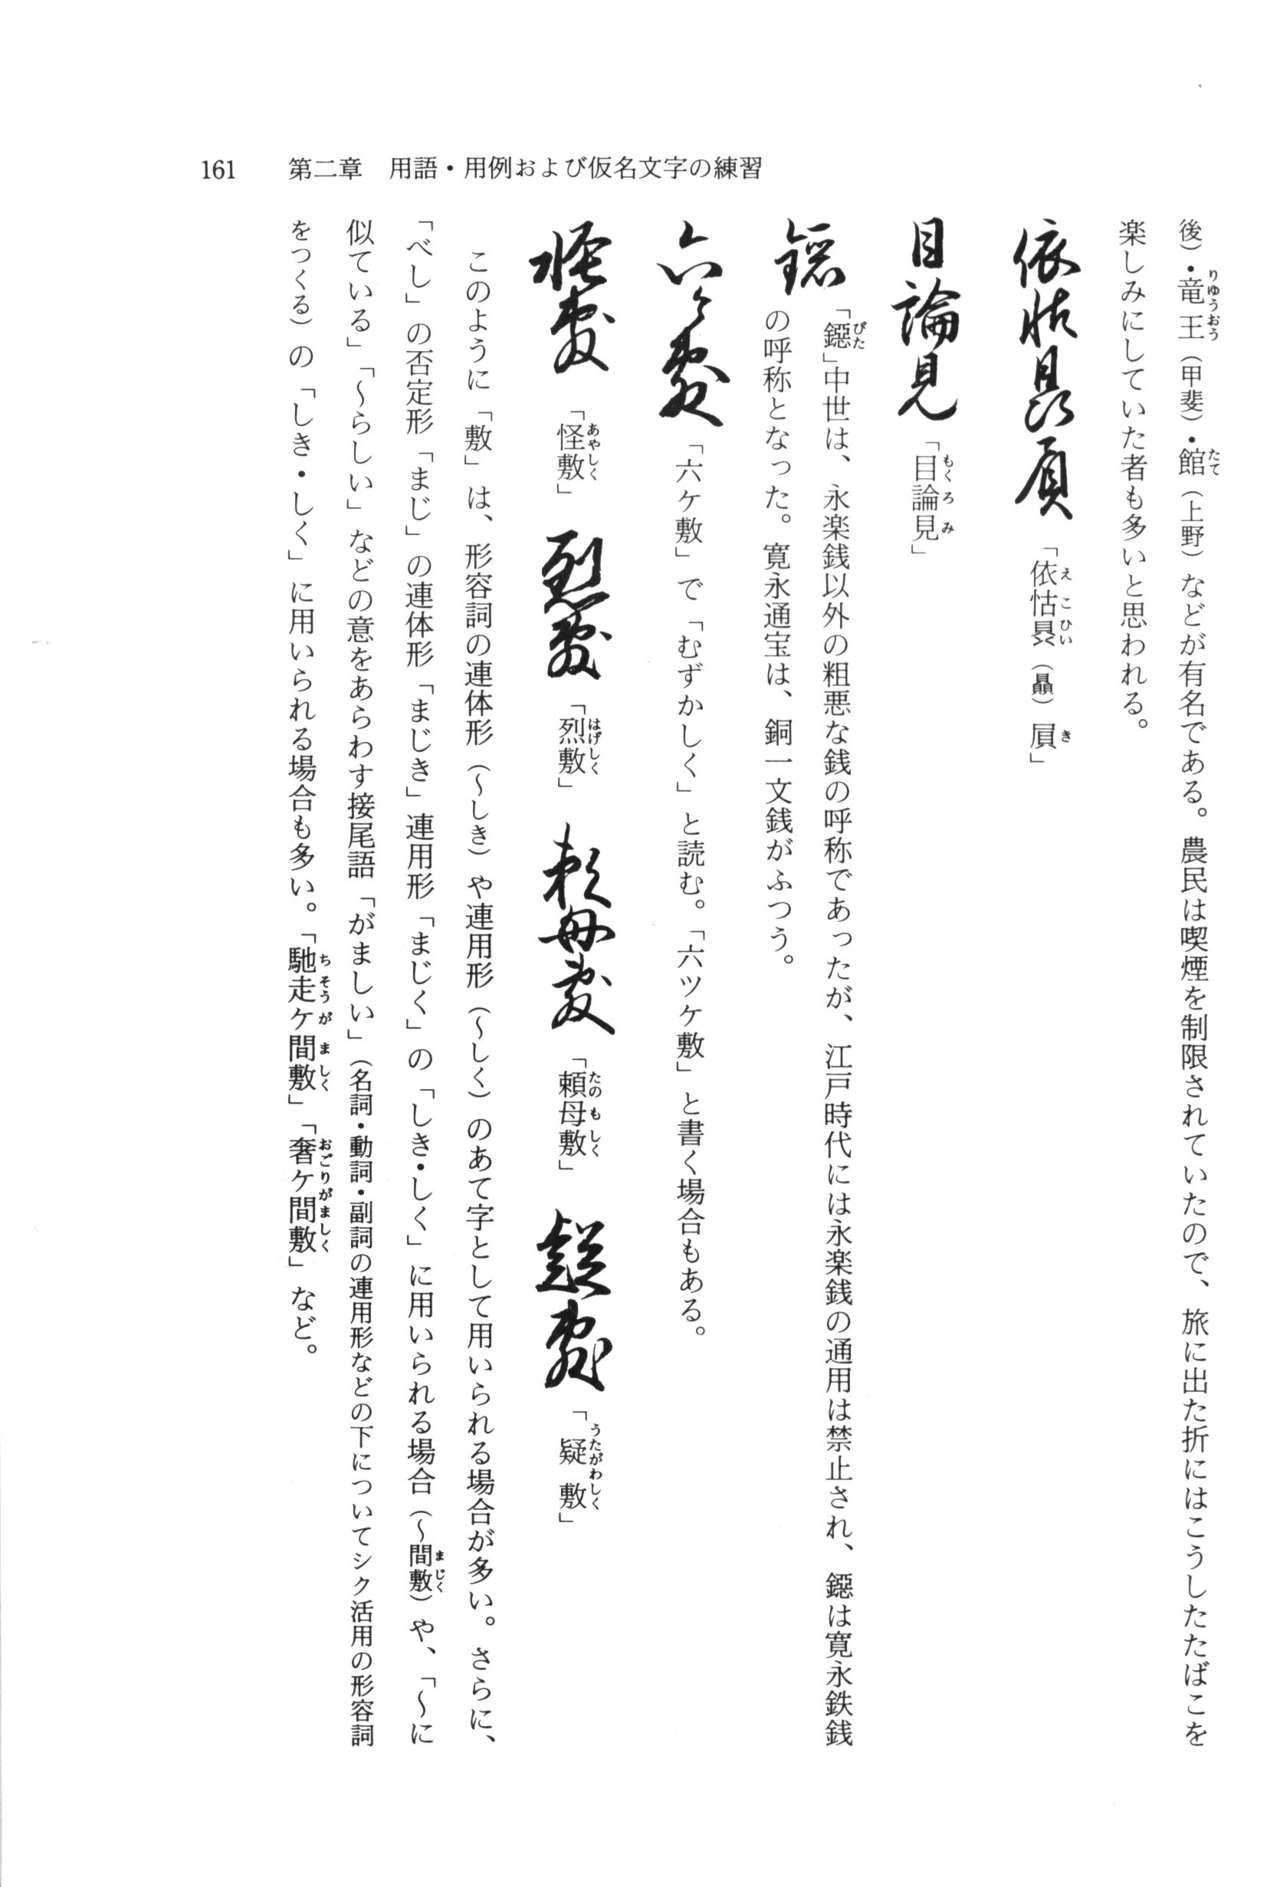 161　第二章　用語・用例および仮名文字の練習
後）・竜王（甲斐）・館（上野）などが有名である。農民は喫煙を制限されていたので、旅に出た折にはこうしたたばこを
楽しみにしていた者も多いと思われる。
依怙贔屓「依怙贔（贔）屓」
目論見「目論見」
鐚「鐚」中世は、永楽銭以外の粗悪な銭の呼称であったが、江戸時代には永楽銭の通用は禁止され、鐚は寛永鉄銭
の呼称となった。寛永通宝は、銅一文銭がふつう。
六ケ敷「六ケ敷」で「むずかしく」と読む。「六ツケ敷」と書く場合もある。
怪敷「怪敷」烈敷「烈敷」頼母敷「頼母敷」疑敷「疑敷」
このように「敷」は、形容詞の連体形（〜しき）や連用形（〜しく）のあて字として用いられる場合が多い。さらに、
「べし」の否定形「まじ」の連体形「まじき」連用形「まじく」の「しき・しく」に用いられる場合（〜間敷）や、「〜に
似ている」「〜らしい」などの意をあらわす接尾語「がましい」（名詞・動詞・副詞の連用形などの下についてシク活用の形容詞
をつくる）の「しき・しく」に用いられる場合も多い。「馳走ケ間敷」「奢ケ間敷」など。